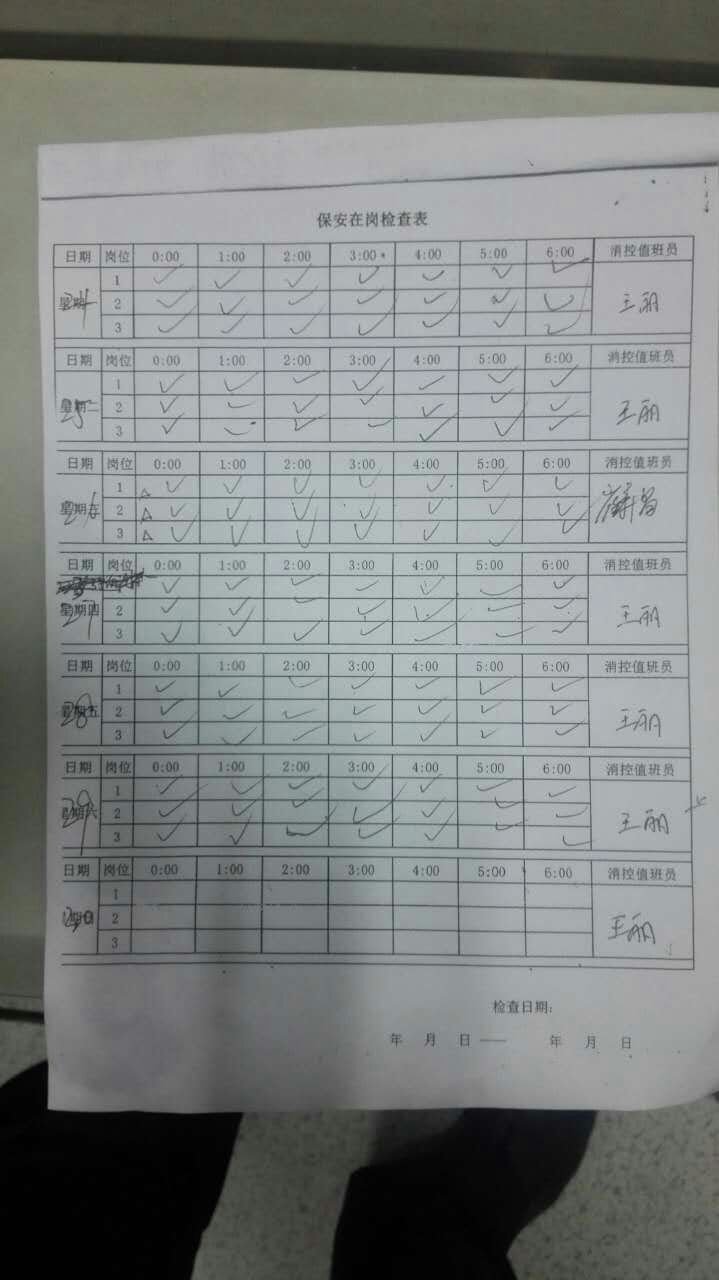 保安在岗检查表
日期 岗位 0:00 1:00 2:00 3:00 4:00 5:00 6:00 消控值班员
1 ✓ ✓ ✓ ✓ ✓ ✓ ✓
24 2 ✓ ✓ ✓ ✓ ✓ ✓ ✓ 王丽
3 ✓ ✓ ✓ ✓ ✓ ✓ ✓
日期 岗位 0:00 1:00 2:00 3:00 4:00 5:00 6:00 消控值班员
1 ✓ ✓ ✓ ✓ ✓ ✓ ✓
星期二 25 2 ✓ ✓ ✓ ✓ ✓ ✓ ✓ 王丽
3 ✓ ✓ ✓ ✓ ✓ ✓ ✓
日期 岗位 0:00 1:00 2:00 3:00 4:00 5:00 6:00 消控值班员
1 △ ✓ ✓ ✓ ✓ ✓ ✓ ✓
星期三 26 2 △ ✓ ✓ ✓ ✓ ✓ ✓ ✓
3 △ ✓ ✓ ✓ ✓ ✓ ✓ ✓
日期 岗位 0:00 1:00 2:00 3:00 4:00 5:00 6:00 消控值班员
✓ ✓ ✓ ✓ ✓ ✓ ✓
星期四 27 2 ✓ ✓ ✓ ✓ ✓ ✓ ✓ 王丽
3 ✓ ✓ ✓ ✓ ✓ ✓ ✓
日期 岗位 0:00 1:00 2:00 3:00 4:00 5:00 6:00 消控值班员
1 ✓ ✓ ✓ ✓ ✓ ✓ ✓
星期五 28 2 ✓ ✓ ✓ ✓ ✓ ✓ ✓ 王丽
3 ✓ ✓ ✓ ✓ ✓ ✓ ✓
日期 岗位 0:00 1:00 2:00 3:00 4:00 5:00 6:00 消控值班员
1 ✓ ✓ ✓ ✓ ✓ ✓ ✓
星期六 29 2 ✓ ✓ ✓ ✓ ✓ ✓ ✓ 王丽
3 ✓ ✓ ✓ ✓ ✓ ✓ ✓
日期 岗位 0:00 1:00 2:00 3:00 4:00 5:00 6:00 消控值班员
1
2 王丽
3
检查日期:
年 月 日 —— 年 月 日